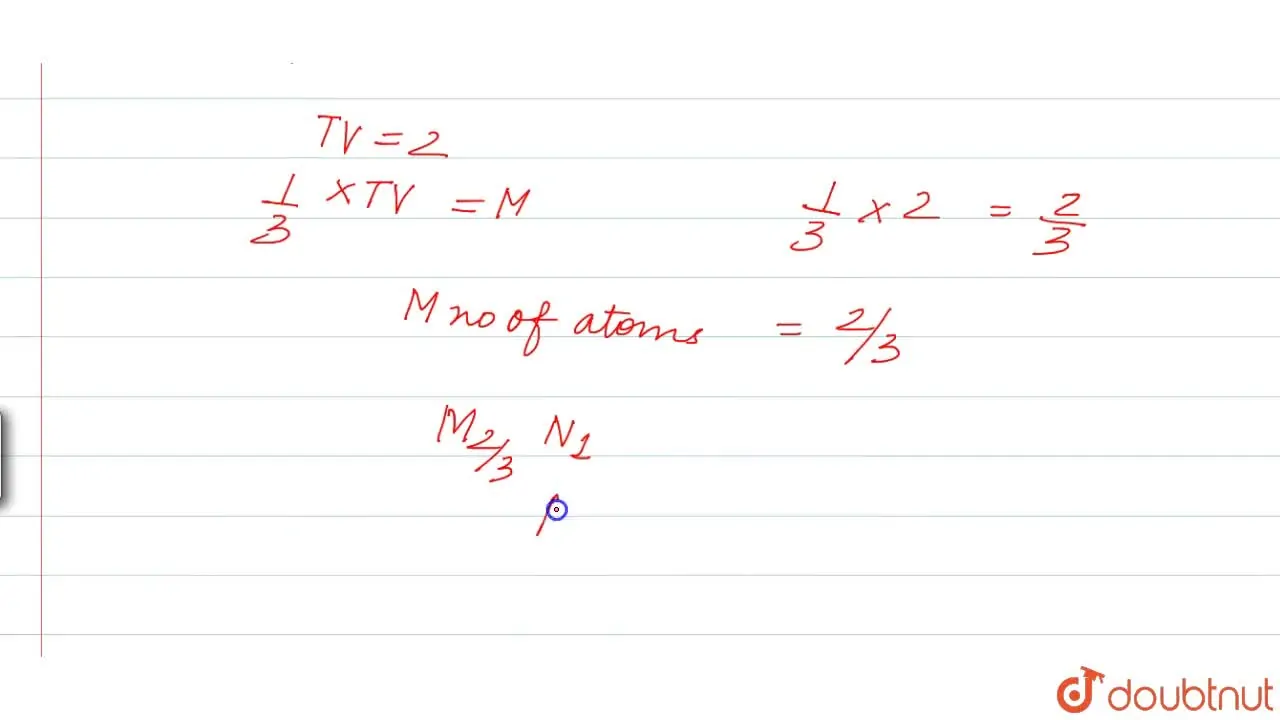 TV = 2
1/3 × TV = M
1/3 × 2 = 2/3
M no of atoms = 2/3
M2/3 N1
doubtnut